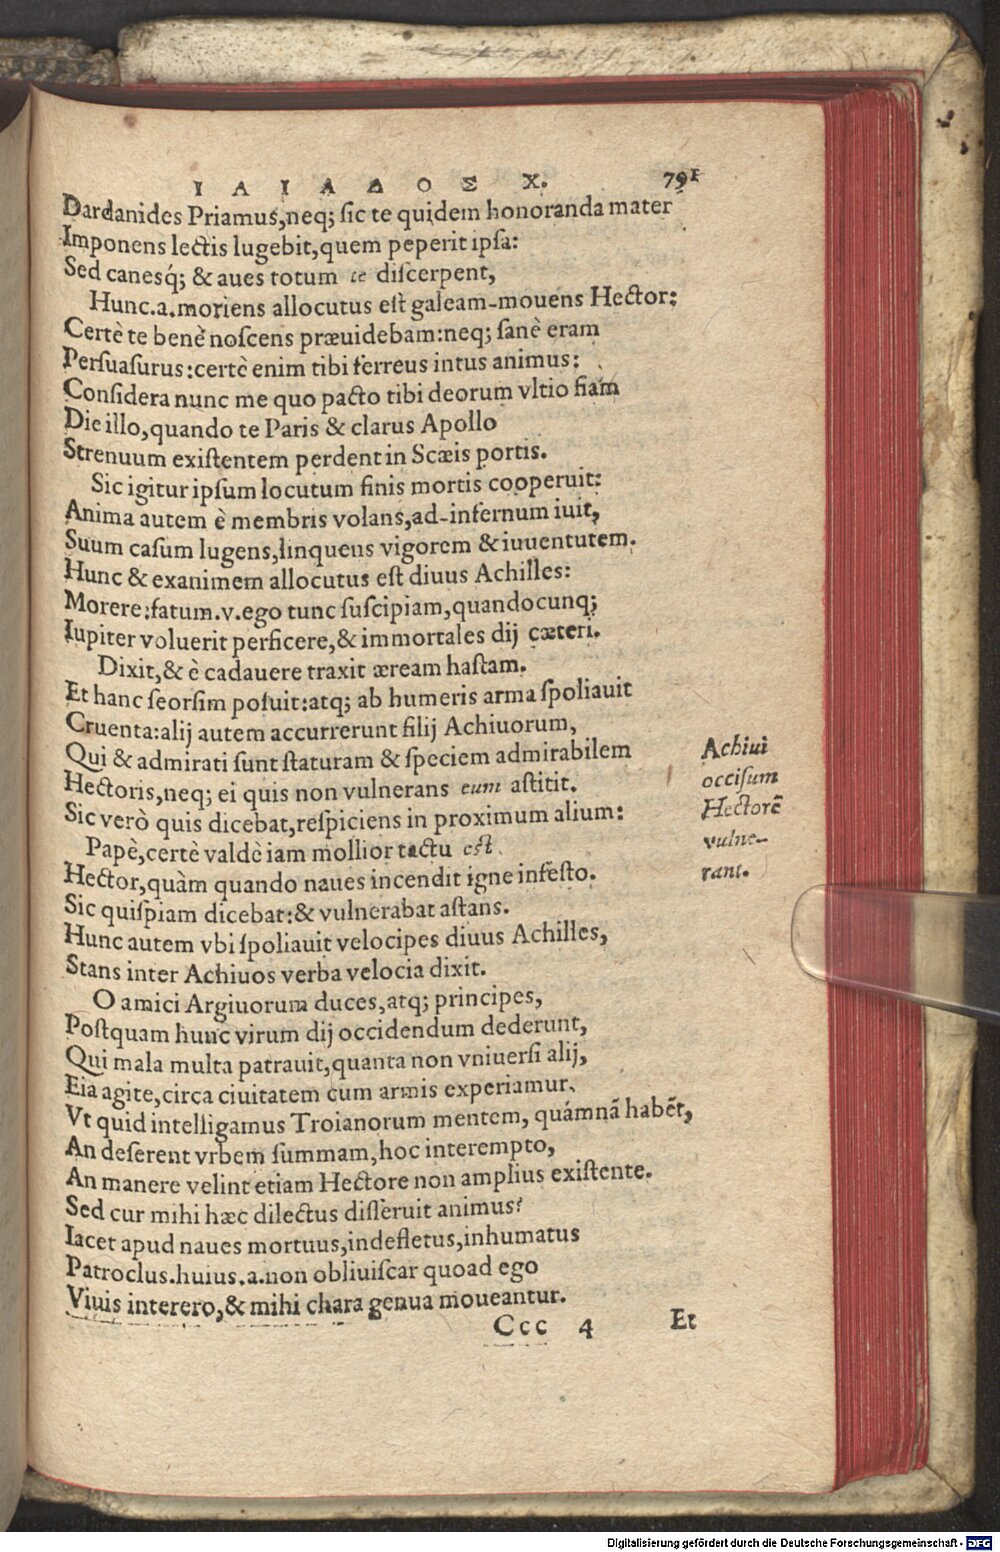 ΙΛΙΑΔΟΣ Χ. 791
Dardanides Priamus,neq; ſic te quidem honoranda mater
Imponens lectis lugebit,quem peperit ipſa:
Sed canesq́; & aues totum te diſcerpent,
Hunc.a.moriens allocutus eſt galeam-mouens Hector:
Certè te benè noſcens præuidebam:neq; ſanè eram
Perſuaſurus:certè enim tibi ferreus intus animus:
Conſidera nunc me quo pacto tibi deorum vltio fiam
Die illo,quando te Paris & clarus Apollo
Strenuum exiſtentem perdent in Scæis portis.
Sic igitur ipſum locutum finis mortis cooperuit:
Anima autem è membris volans,ad-infernum iuit,
Suum caſum lugens,linquens vigorem & iuuentutem.
Hunc & exanimem allocutus eſt diuus Achilles:
Morere:fatum.v.ego tunc ſuſcipiam,quandocunq;
Iupiter voluerit perficere,& immortales dij cæteri.
Dixit,& è cadauere traxit æream haſtam.
Et hanc ſeorſim poſuit:atq; ab humeris arma ſpoliauit
Cruenta:alij autem accurrerunt filij Achiuorum,
Qui & admirati ſunt ſtaturam & ſpeciem admirabilem
Hectoris,neq; ei quis non vulnerans eum aſtitit.
Sic verò quis dicebat,reſpiciens in proximum alium:
Papè,certè valdè iam mollior tactu eſt
Hector,quàm quando naues incendit igne infeſto.
Sic quiſpiam dicebat:& vulnerabat aſtans.
Hunc autem vbi ſpoliauit velocipes diuus Achilles,
Stans inter Achiuos verba velocia dixit.
O amici Argiuorum duces,atq; principes,
Poſtquam hunc virum dij occidendum dederunt,
Qui mala multa patrauit,quanta non vniuerſi alij,
Eia agite,circa ciuitatem cum armis experiamur,
Vt quid intelligamus Troianorum mentem, quámnã habẽt,
An deſerent vrbem ſummam,hoc interempto,
An manere velint etiam Hectore non amplius exiſtente.
Sed cur mihi hæc dilectus diſſeruit animus?
Iacet apud naues mortuus,indefletus,inhumatus
Patroclus.huius.a.non obliuiſcar quoad ego
Viuis interero,& mihi chara genua moueantur.
Ccc 4 Et
Achiui
occiſum
Hectorẽ
vulne-
rant.
Digitalisierung gefördert durch die Deutsche Forschungsgemeinschaft - DFG